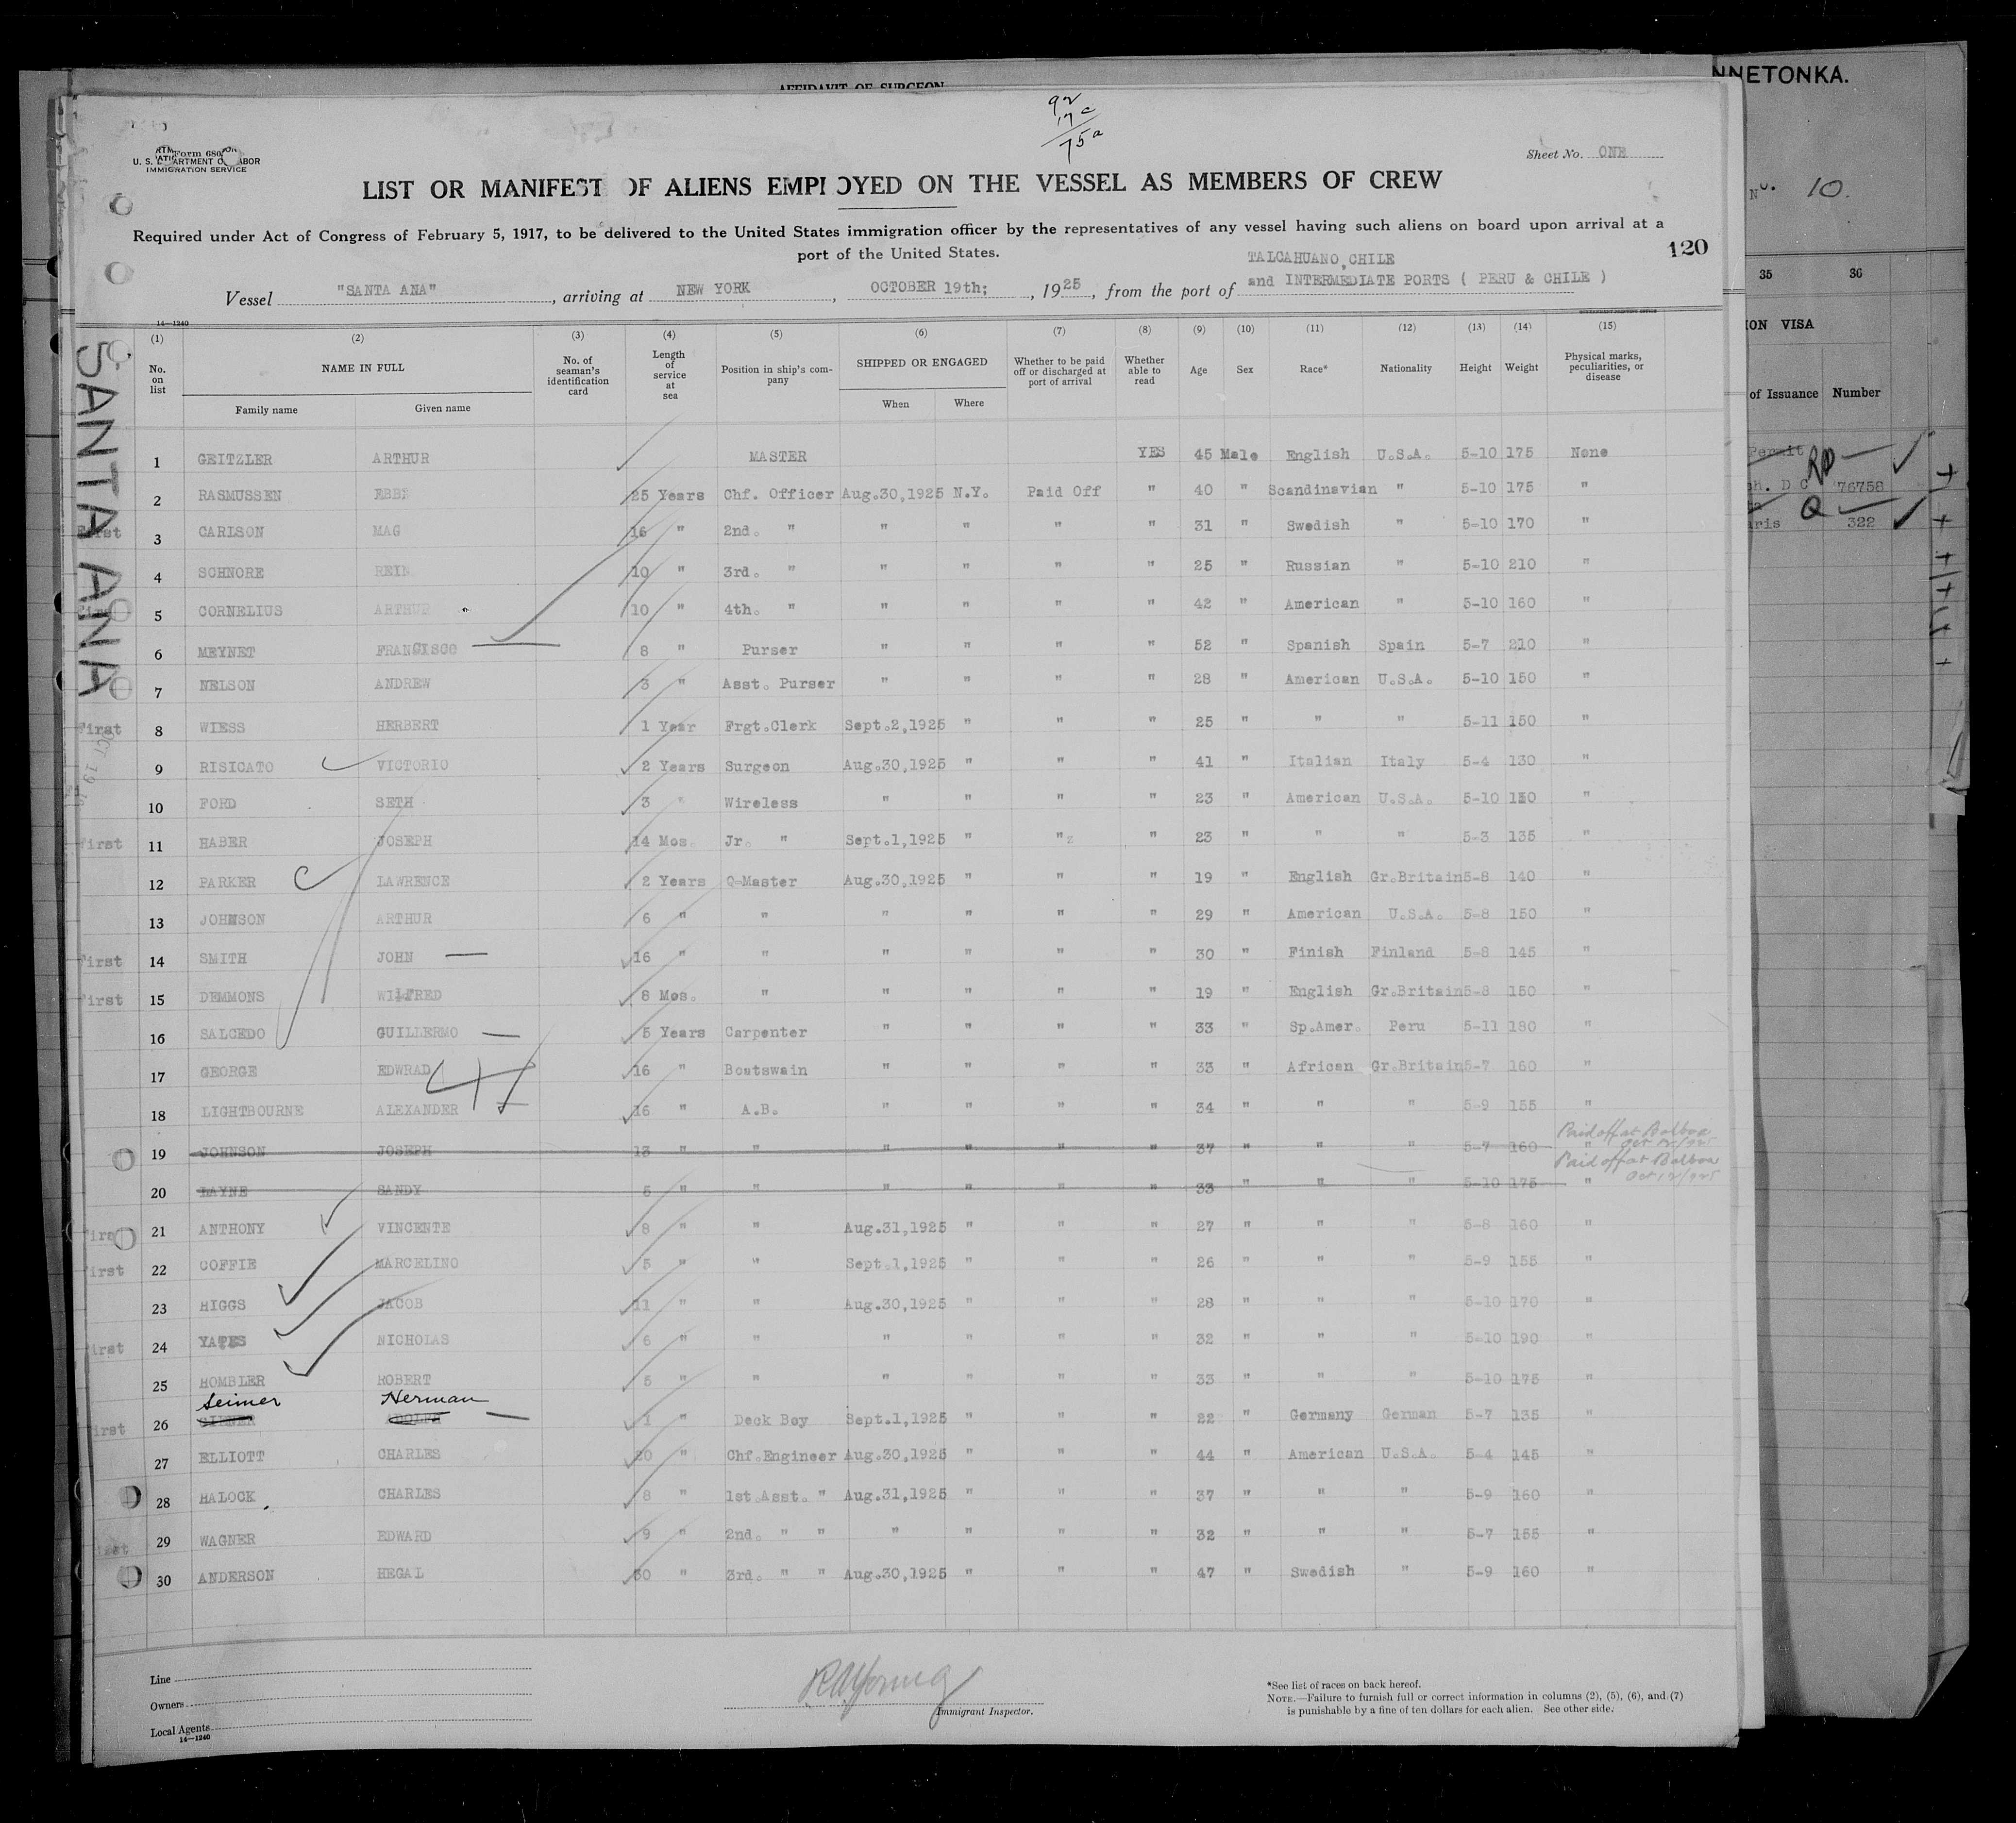 AFFIDAVIT OF SURGEON
NNETONKA.
92
17 c
75 a
Form 680
U. S. DEPARTMENT OF LABOR
IMMIGRATION SERVICE
Sheet No. ONE
LIST OR MANIFEST OF ALIENS EMPLOYED ON THE VESSEL AS MEMBERS OF CREW
No. 10.
Required under Act of Congress of February 5, 1917, to be delivered to the United States immigration officer by the representatives of any vessel having such aliens on board upon arrival at a
port of the United States.
120
TALCAHUANO, CHILE
Vessel "SANTA ANA", arriving at NEW YORK, OCTOBER 19th;, 1925, from the port of and INTERMEDIATE PORTS ( PERU & CHILE )
14—1240
SANTA ANA
(1) (2) (3) (4) (5) (6) (7) (8) (9) (10) (11) (12) (13) (14) (15)
No. on list NAME IN FULL No. of seaman's identification card Length of service at sea Position in ship's company SHIPPED OR ENGAGED Whether to be paid off or discharged at port of arrival Whether able to read Age Sex Race* Nationality Height Weight Physical marks, peculiarities, or disease
Family name Given name When Where
1 GEITZLER ARTHUR MASTER YES 45 Male English U.S.A. 5-10 175 None
2 RASMUSSEN EBBE 25 Years Chf. Officer Aug.30,1925 N.Y. Paid Off " 40 " Scandinavian " 5-10 175 "
First 3 CARLSON MAG 16 " 2nd. " " " " " 31 " Swedish " 5-10 170 "
4 SCHNORE REIN 10 " 3rd. " " " " " 25 " Russian " 5-10 210 "
First 5 CORNELIUS ARTHUR 10 " 4th. " " " " " 42 " American " 5-10 160 "
6 MEYNET FRANCISCO 8 " Purser " " " " 52 " Spanish Spain 5-7 210 "
7 NELSON ANDREW 3 " Asst. Purser " " " " 28 " American U.S.A. 5-10 150 "
First 8 WIESS HERBERT 1 Year Frgt.Clerk Sept.2,1925 " " " 25 " " " 5-11 150 "
9 RISICATO VICTORIO 2 Years Surgeon Aug.30,1925 " " " 41 " Italian Italy 5-4 130 "
10 FORD SETH 3 " Wireless " " " " 23 " American U.S.A. 5-10 150 "
First 11 HABER JOSEPH 14 Mos. Jr. " Sept.1,1925 " " " 23 " " " 5-3 135 "
12 PARKER LAWRENCE 2 Years Q-Master Aug.30,1925 " " " 19 " English Gr.Britain 5-8 140 "
13 JOHNSON ARTHUR 6 " " " " " " 29 " American U.S.A. 5-8 150 "
First 14 SMITH JOHN 16 " " " " " " 30 " Finish Finland 5-8 145 "
First 15 DEMMONS WILFRED 8 Mos. " " " " " 19 " English Gr.Britain 5-8 150 "
16 SALCEDO GUILLERMO 5 Years Carpenter " " " " 33 " Sp.Amer. Peru 5-11 180 "
17 GEORGE EDWRAD 16 " Boatswain " " " " 33 " African Gr.Britain 5-7 160 "
18 LIGHTBOURNE ALEXANDER 16 " A.B. " " " " 34 " " " 5-9 155 "
19 JOHNSON JOSEPH 13 " " " " " " 37 " " " 5-7 160 " Paid off at Balboa Oct 12/925
20 LAYNE SANDY 5 " " " " " " 33 " " " 5-10 175 " Paid off at Balboa Oct 12/925
First 21 ANTHONY VINCENTE 8 " " Aug.31,1925 " " " 27 " " " 5-8 160 "
First 22 COFFIE MARCELINO 5 " " Sept.1,1925 " " " 26 " " " 5-9 155 "
23 HIGGS JACOB 11 " " Aug.30,1925 " " " 28 " " " 5-10 170 "
First 24 YATES NICHOLAS 6 " " " " " " 32 " " " 5-10 190 "
25 HOMBLER ROBERT 5 " " " " " " 33 " " " 5-10 175 "
Seimer Herman
First 26 1 " Deck Boy Sept.1,1925 " " " 22 " Germany German 5-7 135 "
27 ELLIOTT CHARLES 20 " Chf.Engineer Aug.30,1925 " " " 44 " American U.S.A. 5-4 145 "
28 HALOCK CHARLES 8 " 1st.Asst. " Aug.31,1925 " " " 37 " " " 5-9 160 "
First 29 WAGNER EDWARD 9 " 2nd. " " " " " " 32 " " " 5-7 155 "
30 ANDERSON HEGAL 30 " 3rd. " " Aug.30,1925 " " " 47 " Swedish " 5-9 160 "
Line
Owners
Local Agents
14—1240
Immigrant Inspector.
*See list of races on back hereof.
NOTE.—Failure to furnish full or correct information in columns (2), (5), (6), and (7)
is punishable by a fine of ten dollars for each alien. See other side.
35 36
ION VISA
of Issuance Number
Permit
RD
h. D C 76758
Q
aris 322